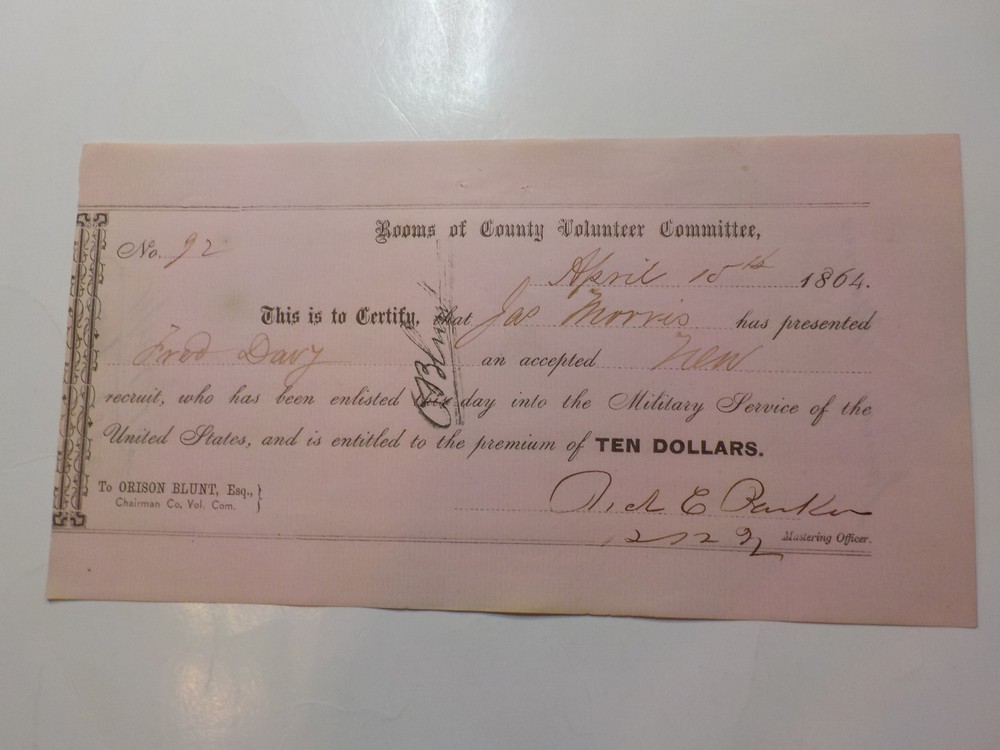 Rooms of County Volunteer Committee,
No. 92
April 15th 1864.
This is to Certify, that Jas Morris has presented
Fred Davy an accepted New
recruit, who has been enlisted this day into the Military Service of the
United States, and is entitled to the premium of TEN DOLLARS.
O Blunt
To ORISON BLUNT, Esq., }
Chairman Co. Vol. Com.
E Parker
Mustering Officer.